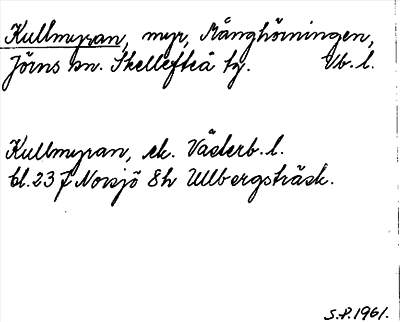 Kullmyran, myr, Månghörningen,
Jörns sn. Skellefteå tg. Vb. l.
Kullmyran, ek. Västerb. l.
bl. 23 J Norsjö 8h Ullbergsträsk.
S.P. 1961.